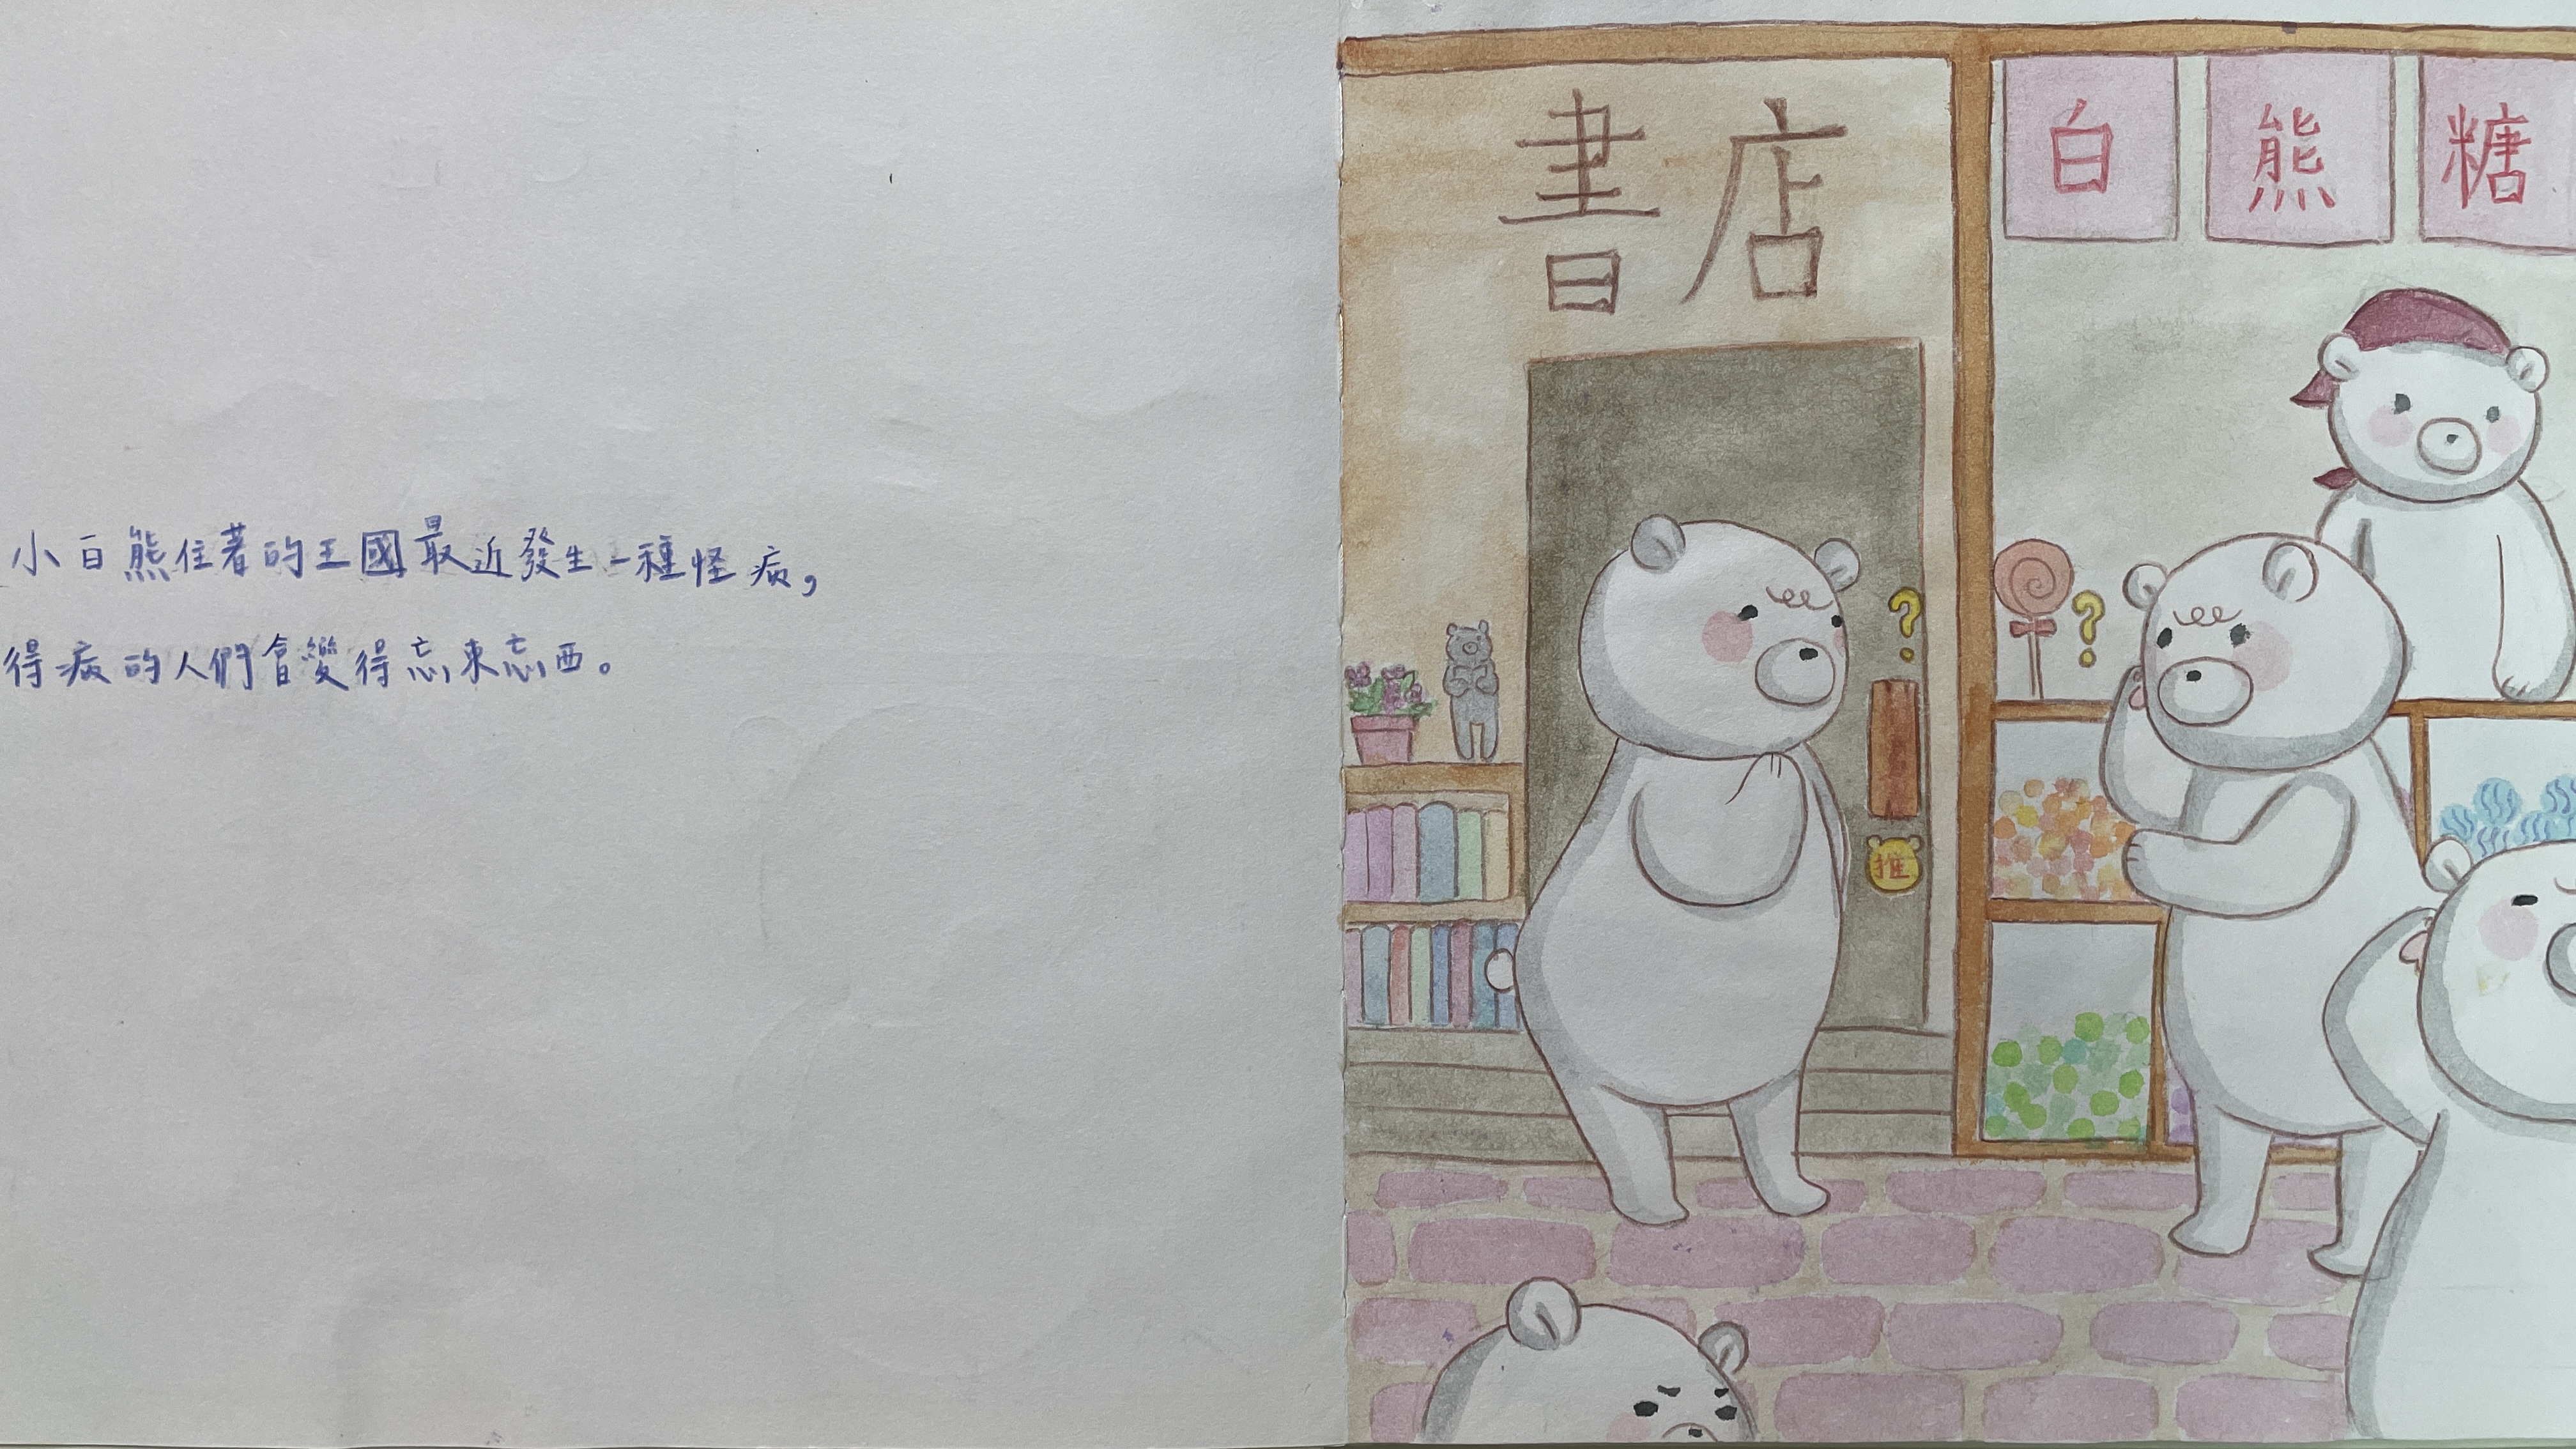 小白熊住著的王國最近發生一種怪病，
得病的人們會變得忘東忘西。
書店
白熊糖
?
?
推